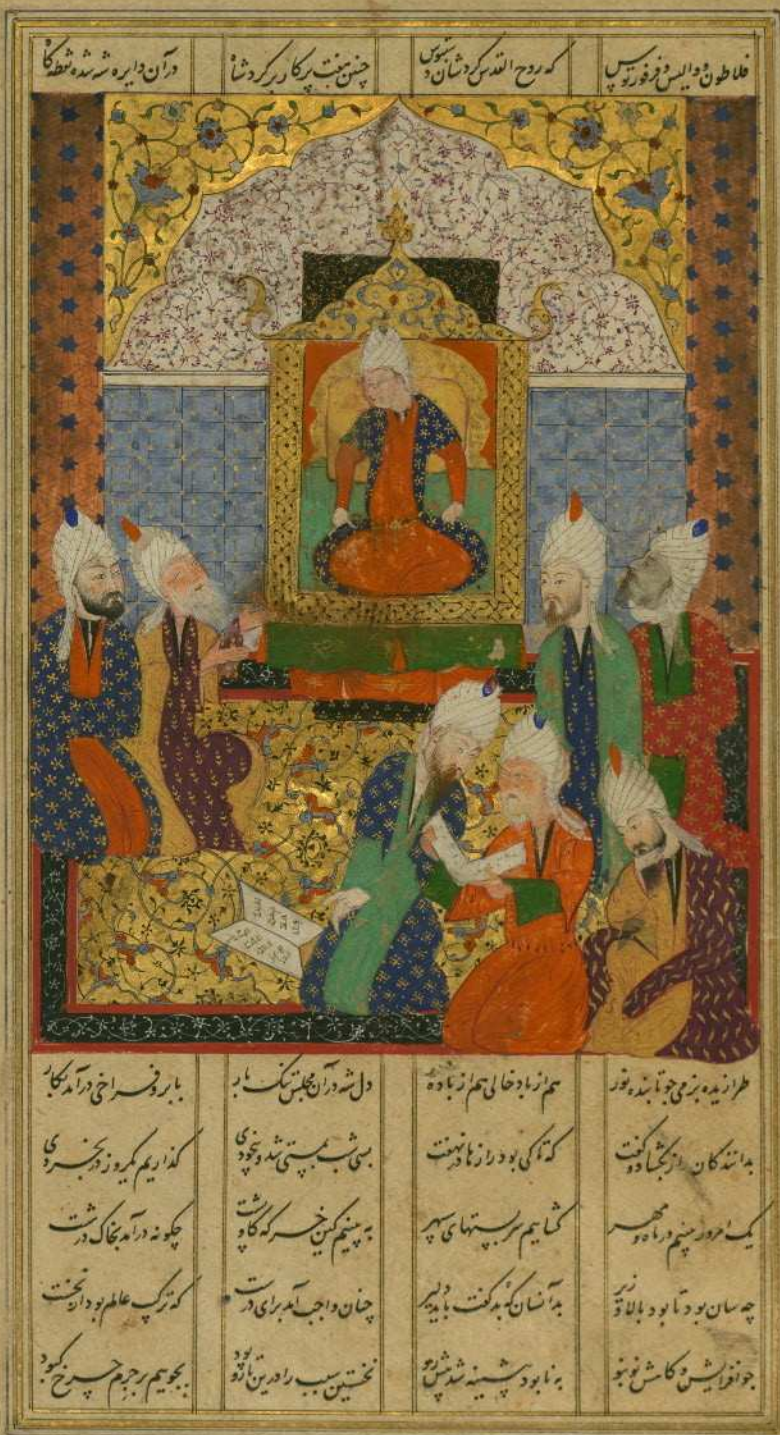 فلاطون و والیس و فرفوریوس که روح القدس کردشان دستبوس چنین هفت پرکار بر گرد شاه در آن دایره شه شده نقطه گاه
طرازنده بزمی چو تابنده نور هم از باد خالی هم از باده دل شه در آن مجلس تنک بار بابرو فراخی درآمد بکار
بدانندگان راز بگشاد و گفت که تا کی بود رازها در نهفت بسی شب بمستی شد و بیخودی گذاریم یکروز در بخردی
یک امروز بینیم در ماه و مهر گشاییم سربستهای سپهر به بینیم کین خرکه گاو پشت چگونه درآمد بخاک درشت
چه سان بود تا بود بالا و زیر بدانسان که بد گفت باید دلیر چنان واجب آمد برای درست که ترکیب عالم بود از نخست
چو افزایش و کاهش نو بنو به نابود پیشینه شد پیش رو نخستین سبب را درین تار و پود بجوییم بر جرم چرخ کبود